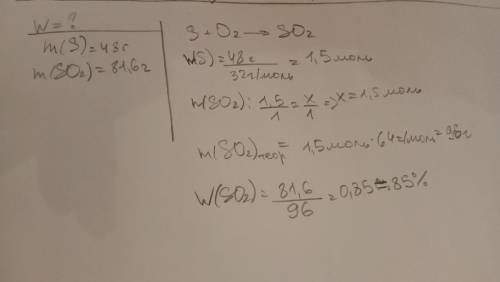 W = ?
m(S) = 48г
m(SO2) = 81,6г
S + O2 → SO2
n(S) = 48г / 32г/моль = 1,5 моль
n(SO2): 1,5/1 = x/1 => x = 1,5 моль
m(SO2)теор = 1,5 моль · 64 г/моль = 96г
W(SO2) = 81,6 / 96 = 0,85 = 85%